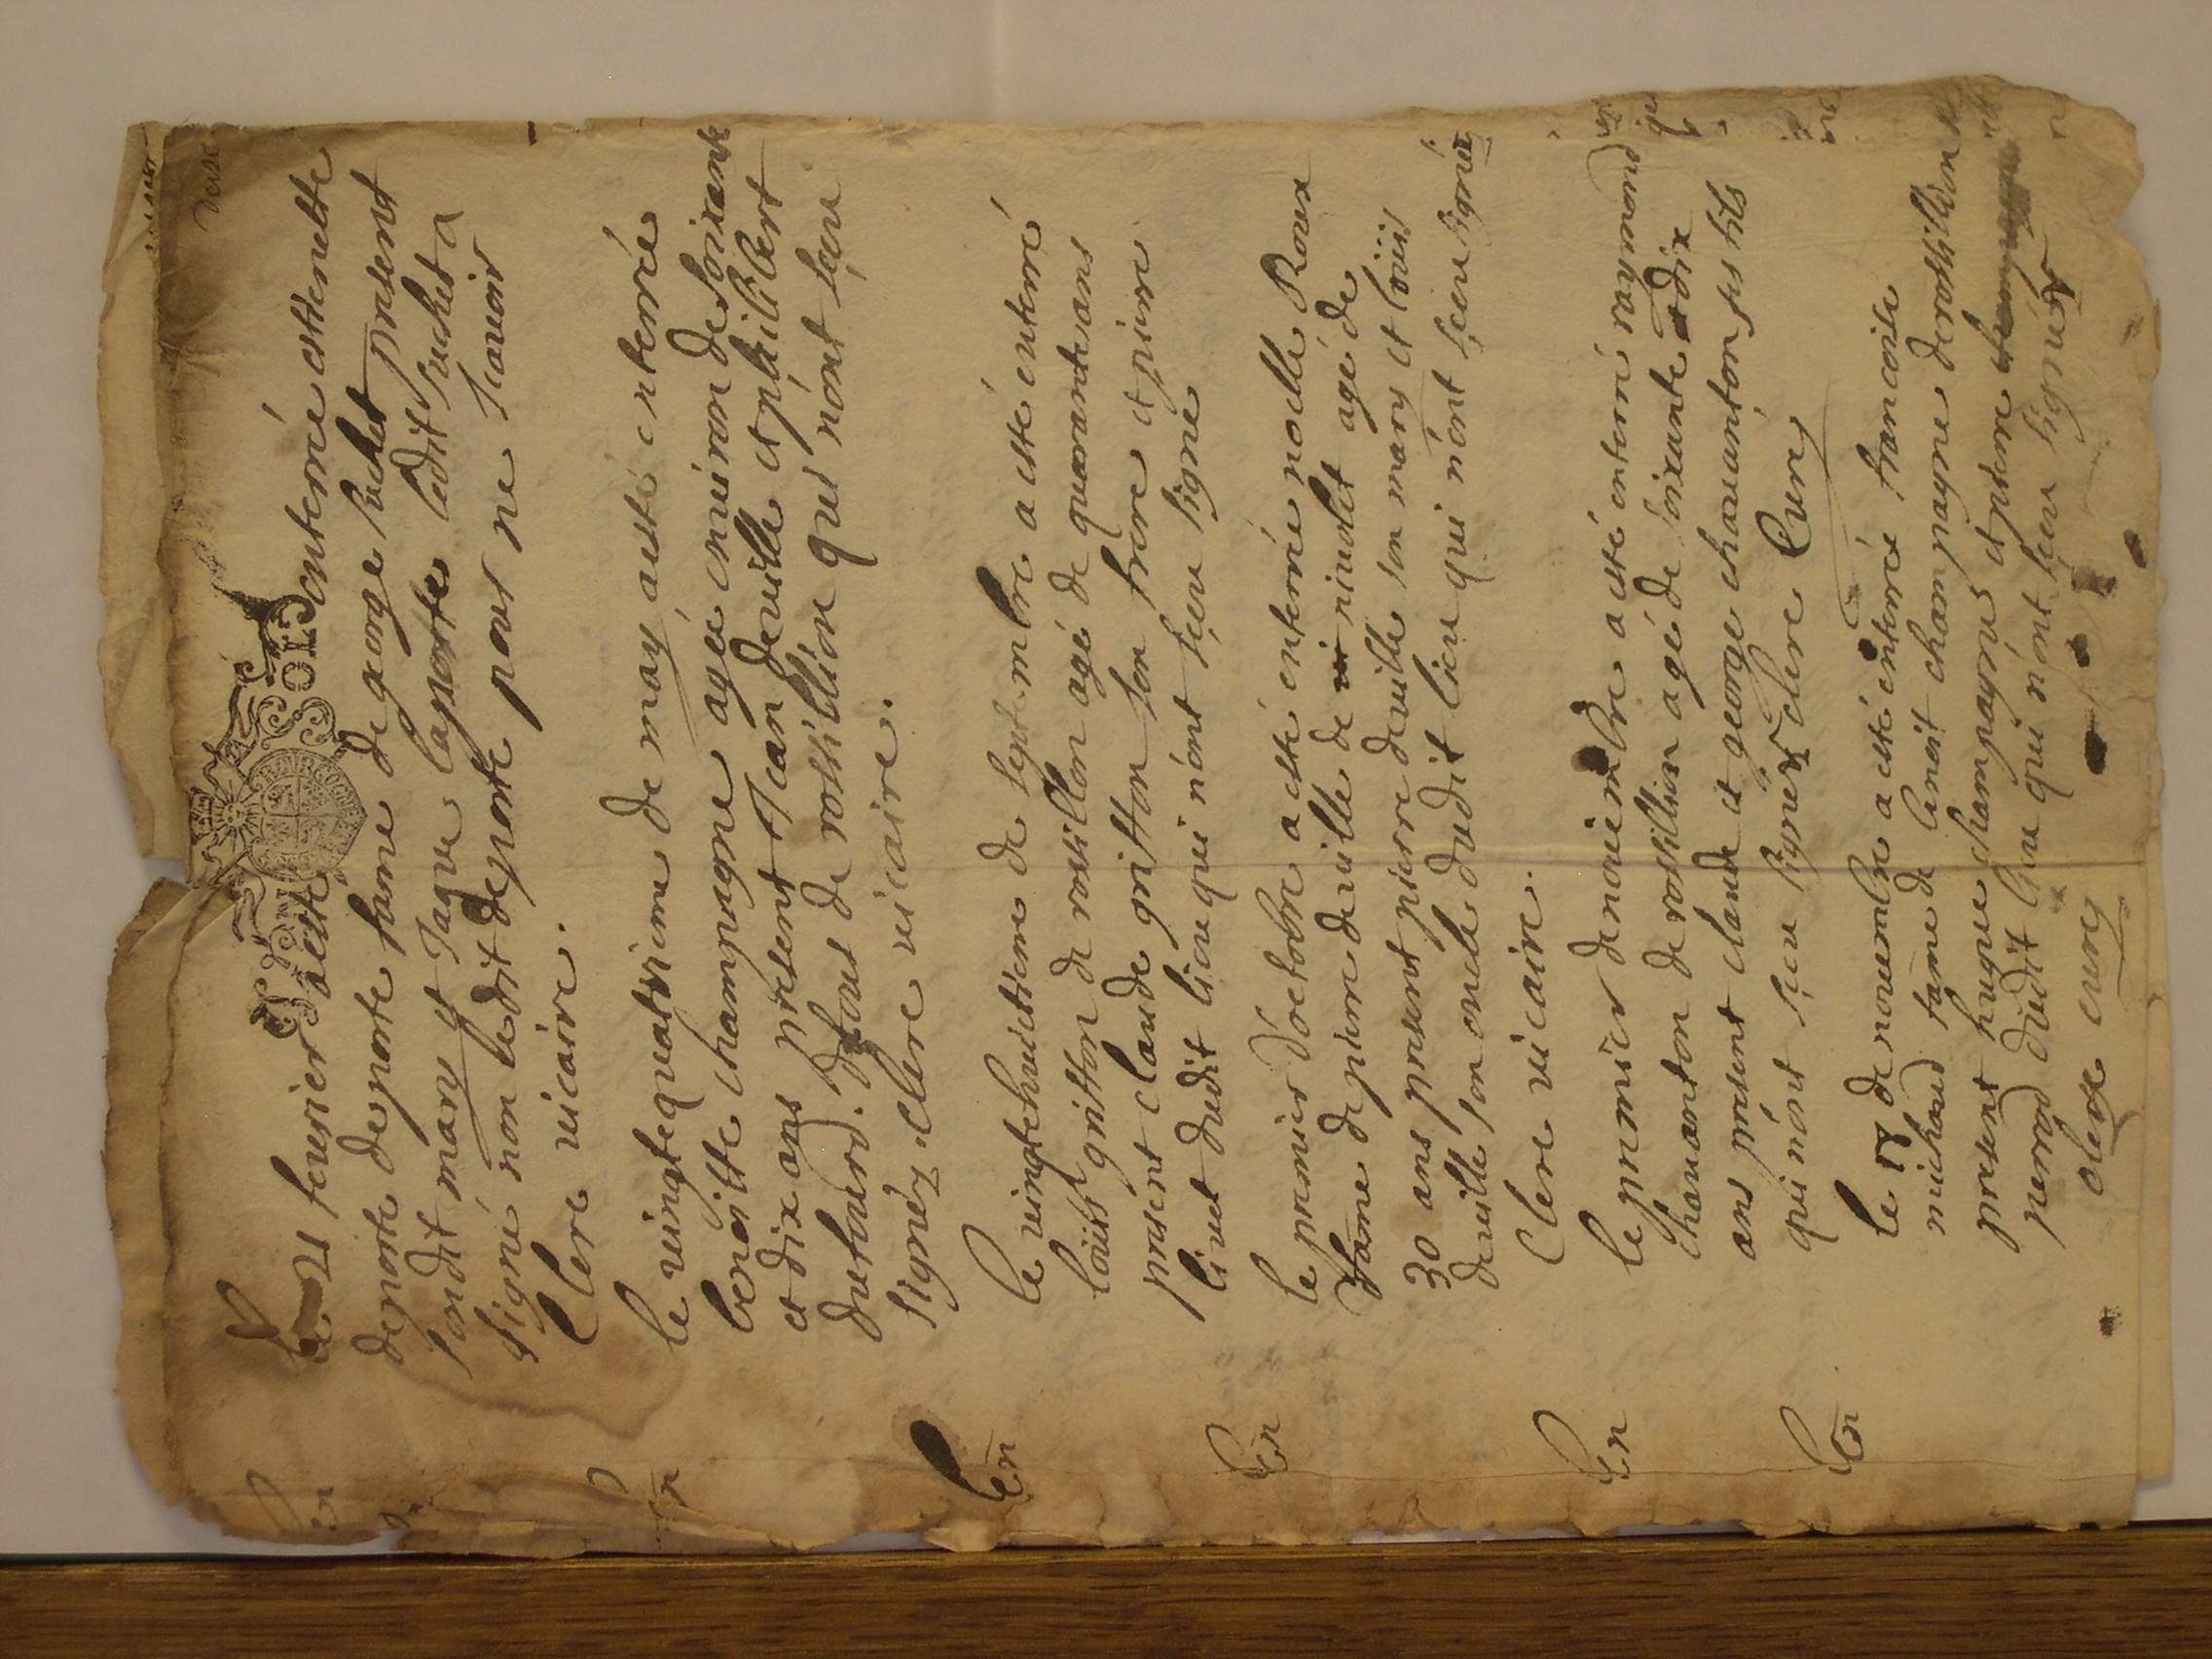 Le 21 feurier a esté enterrée estienette
deporte fame de george suchet present
sondit mary et Jaque laporte ledit suchet a
signé non ledit deporte pour ne scauoir
Clere uicaire.
en
le uingtequatrieme de may aesté enterrée
benoitte champagne agée enuiron de soixante
et dix ans present Jean deuille et philibert
dufourd. tous de rossillion qui nónt sceu
signéz Clere uicaire.
en
le uingtehuictieme de septembre a esté enterré
louis gritton de rossillon agé de quarantes ans
présént claude gritton son frere et pierre
liuet dudit lieu qui nónt sceu signe
en
le premier d'octobre a esté enterrée noelle Roux
fame de pierre deuille de niuolet agé de
30 ans present pierre deuille son mary et louis
deuille son oncle dudit lieu qui nónt sceu signéz
Clere uicaire.
en
le premier denouembre a esté enterré raymond
chauanton de rossillion agé de soixante et dix
ans présent claude et george chauanton ses fils
qui nónt sceu signéz Clere Curé
en
le 17 denouembre a esté enterreé francoise
michaud fame de benoit champagne derossillion
present hugue champagne et pierre
perrod dudit lieu qui nónt sceu signéz
Clere curé